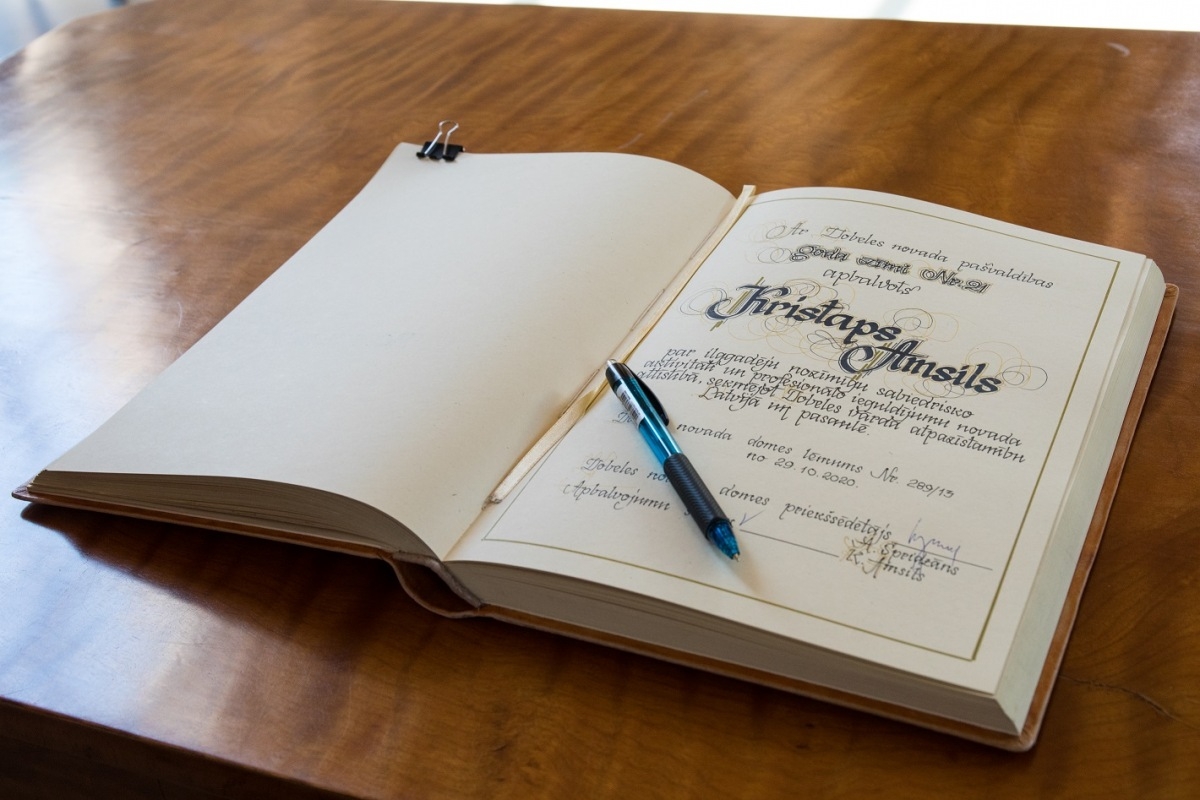 Ar Dobeles novada pašvaldības
goda zīmi Nr.21
apbalvots
Kristaps
Amsils
par ilggadēju nozīmīgu sabiedrisko
aktivitāti un profesionālo ieguldījumu novada
attīstībā, sekmējot Dobeles vārda atpazīstamību
Latvijā un pasaulē.
novada domes lēmums Nr. 289/13
no 29.10.2020.
Dobeles domes priekšsēdētājs
Apbalvojumu
A. Spridzāns
K. Amsils